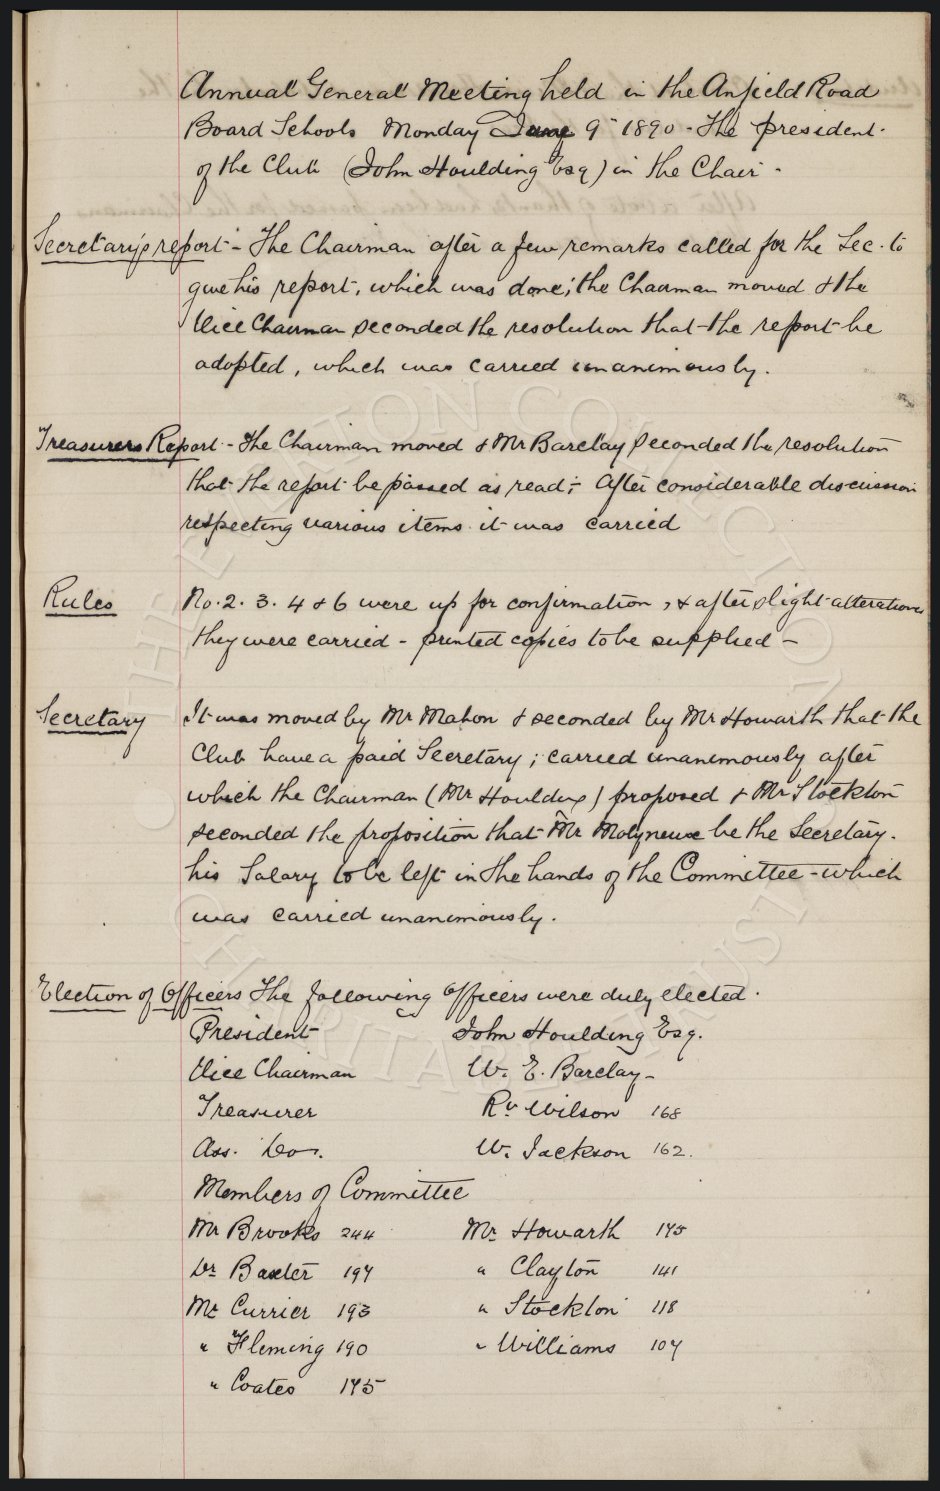 Annual General Meeting held in the Anfield Road
Board Schools Monday June 9th 1890 - The president
of the Club (John Houlding Esq) in the Chair -
Secretary's report - The Chairman after a few remarks called for the Sec. to
give his report, which was done; the Chairman moved & the
Vice Chairman seconded the resolution that the report be
adopted, which was carried unanimously.
Treasurers Report - The Chairman moved & Mr Barclay seconded the resolution
that the report be passed as read; - After considerable discussion
respecting various items it was carried
Rules No. 2. 3. 4 & 6 were up for confirmation, & after slight alterations
they were carried - printed copies to be supplied -
Secretary It was moved by Mr Mahon & seconded by Mr Howarth that the
Club have a paid Secretary; carried unanimously after
which the Chairman (Mr Houlding) proposed & Mr Stockton
seconded the proposition that Mr Molyneux be the Secretary.
his Salary to be left in the hands of the Committee - which
was carried unanimously.
Election of Officers The following officers were duly elected.
President John Houlding Esq.
Vice Chairman W. E. Barclay -
Treasurer Rd Wilson 168
Ass. Do. W. Jackson 162.
Members of Committee
Mr Brooks 244 Mr Howarth 145
Dr Baxter 194 " Clayton 141
Mr Currier 193 " Stockton 118
" Fleming 190 " Williams 104
" Coates 145
THE EVERTON COLLECTION
CHARITABLE TRUST